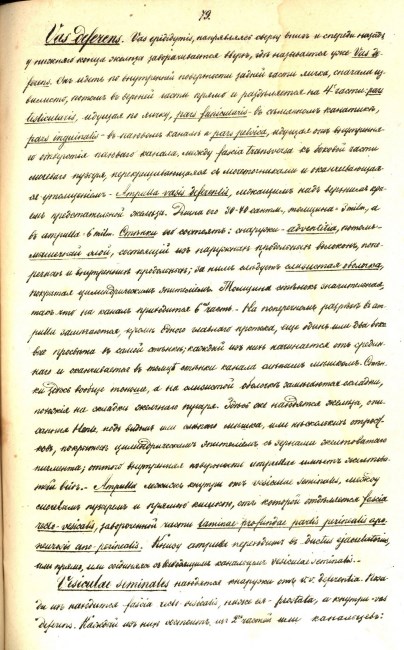 79.
Vas deferens. Vas epididymis, направляясь сверху внизъ и спереди назадъ,
у нижняго конца яичка заворачивается вверхъ, гдѣ называется уже Vas de-
ferens. Онъ идетъ по внутренней поверхности задней части яичка, сначала из-
вилисто, потомъ въ верхней части прямо и раздѣляется на 4 части: pars
testicularis, идущая по яичку, pars funicularis въ сѣмянномъ канатикѣ,
pars inguinalis въ паховомъ каналѣ и pars pelvica, идущая отъ внутрення-
го отверстія паховаго канала, между fascia transversa къ боковой части
мочеваго пузыря, перекрещивающаяся съ мочеточниками и оканчивающая-
ся утолщеніемъ - Ampulla vasis deferentis, лежащимъ надъ верхнимъ кра-
емъ предстательной железы. Длина его 30-40 сантм., толщина - 3 mlm., а
въ ampulla - 6 mlm. Стѣнки его состоятъ: снаружи - adventitia, потомъ
мышечный слой, состоящій изъ наружныхъ продольныхъ волоконъ, попе-
речныхъ и внутреннихъ продольныхъ; за нимъ слѣдуетъ слизистая оболочка,
покрытая цилиндрическимъ эпителіемъ. Толщина стѣнокъ значительная,
такъ что на каналъ приходится 6ая часть. На поперечномъ разрѣзѣ въ am-
pulla замѣчаются, кромѣ одного главнаго протока, еще одинъ или два
просвѣта въ самой стѣнкѣ; каждый изъ нихъ начинается отъ средин-
наго и оканчивается въ толщѣ стѣнки канала слѣпымъ мѣшкомъ. Стѣн-
ки здѣсь вообще тоньше, а на слизистой оболочкѣ замѣчаются складки,
похожія на складки желчнаго пузыря. Здѣсь же находятся железы, опи-
санныя Henle, видъ мѣшка, или нѣсколькихъ отрост-
ковъ, покрытыхъ цилиндрическимъ эпителіемъ, съ зернами желтоватаго
пигмента; оттого внутренняя поверхность ampullae имѣетъ желтова-
тый видъ. - Ampulla лежитъ кнутри отъ vesiculae seminales, между
мочевымъ пузыремъ и прямою кишкою, отъ которой отдѣляется fascia
recto-vesicalis, заворотомъ части laminae profundae partis perinealis apo-
neurosis ano-perinealis. Книзу ampulla переходитъ въ ductus ejaculatorius,
или прямо, или соединяясь съ выводящимъ каналомъ vesiculae seminalis.
Vesiculae seminales находятся снаружи отъ v.v. deferentia. Поза-
ди ихъ находится fascia recto-vesicalis, ниже ея - prostata, а кнутри - vas
deferens. Каждый изъ нихъ состоитъ изъ 2хъ частей или канальцевъ: